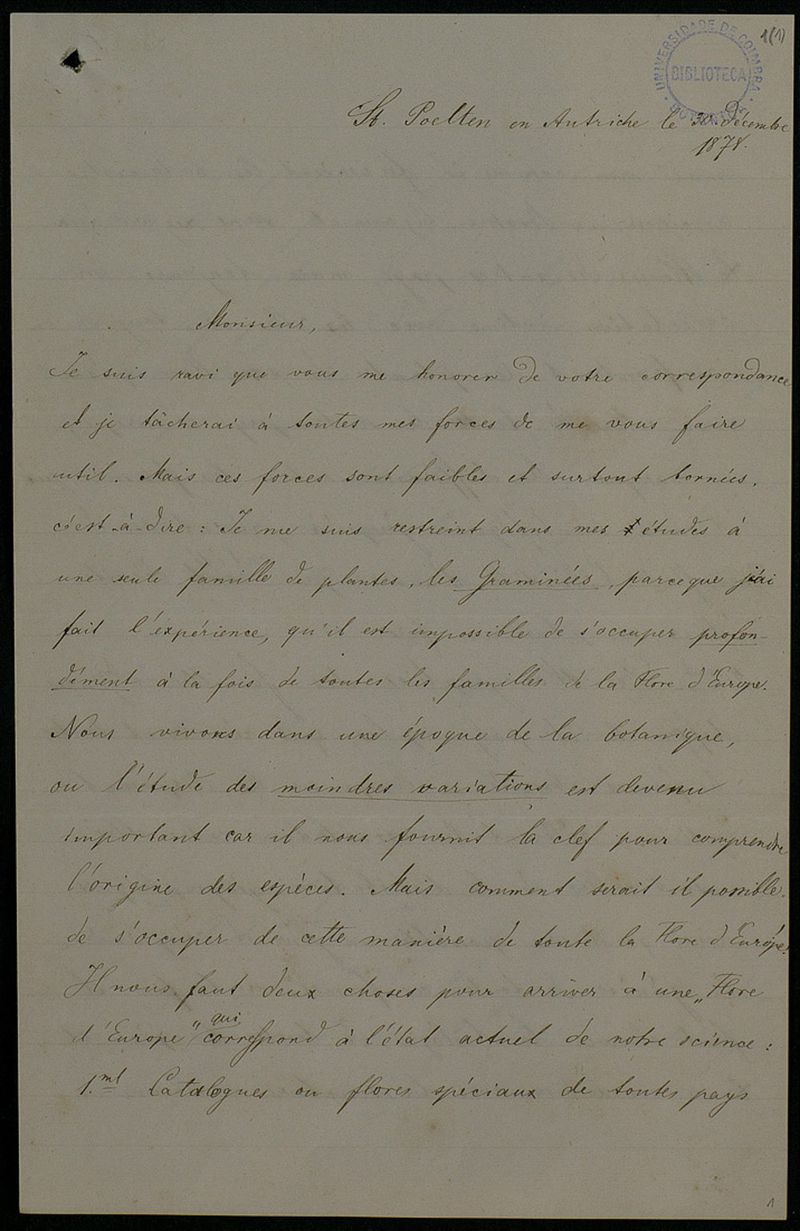 1(1)
UNIVERSIDADE DE COIMBRA
BIBLIOTECA
BOTANICA
St. Poelten en Autriche le 30 Décembre
1878.
Monsieur,
Je suis ravi que vous me honorer de votre correspondance
et je tâcherai à toutes mes forces de me vous faire
util. Mais ces forces sont faibles et surtout bornées,
c'est-à-dire: Je me suis restreint dans mes études à
une seule famille de plantes, les Graminées, parceque j'ai
fait l'expérience, qu'il est impossible de s'occuper profon-
dément à la fois de toutes les familles de la Flore d'Europe.
Nous vivons dans une époque de la botanique,
ou l'étude des moindres variations est devenu
important car il nous fournit la clef pour comprendre
l'origine des espéces. Mais comment serait il possible
de s'occuper de cette manière de toute la Flore d'Europe?
Il nous faut deux choses pour arriver à une „Flore
d'Europe" qui correspond à l'état actuel de notre science:
1.mt Catalogues ou flores spéciaux de toutes pays
1